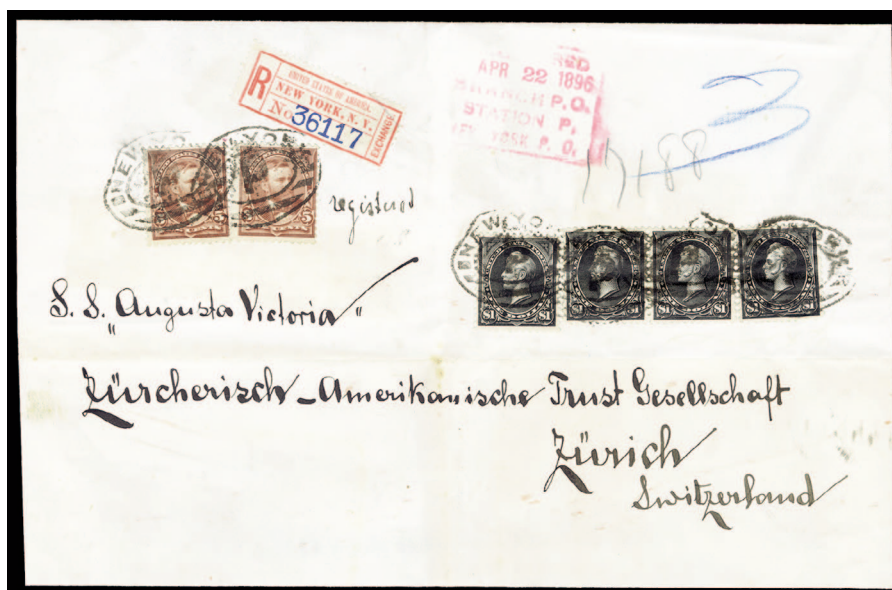 R
UNITED STATES OF AMERICA.
NEW YORK, N. Y.
No 36117
EXCHANGE
APR 22 1896
BRANCH P.O.
STATION P.
NEW YORK P. O.
3
registered
5 5
$1 $1 $1 $1 $1 $1 $1
S. S. "Augusta Victoria"
Zürcherisch-Amerikanische Trust Gesellschaft
Zürich
Switzerland